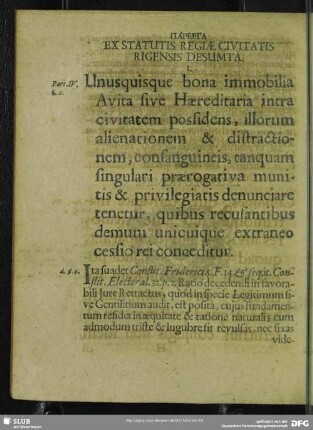 ΠΑΡΕΡΓΑ
EX STATUTIS REGIÆ CIVITATIS
RIGENSIS DESUMTA.
I.
Part. IV,
Unusquisque bona immobilia
Avita sive Hæreditaria intra
civitatem possidens, illorum
alienationem & distractio-
nem, consanguineis, tanquam
singulari prærogativa muni-
tis & privilegiatis denunciare
tenetur, quibus recusantibus
demum unicuique extraneo
cessio rei conceditur.
Ita suadet Constit. Fridericis F. 14 & seq. it. Con-
stit. Electoral. 32. p. 2. Ratio decedendi in favora-
bili Jure Retractus, quod in specie Legitimum si-
ve Gentilitium audit, est posita, cujus fundamen-
tum residet in æquitate & ratione naturali, cum
admodum triste & lugubre sit revulsas, nec fixas
vide-
SLUB
Wir führen Wissen.
gefördert von der
Deutschen Forschungsgemeinschaft
DFG